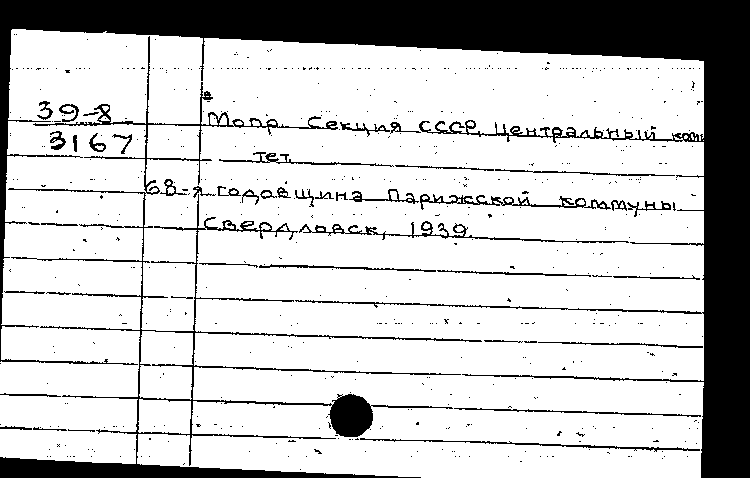 39-8
3167
Мопр. Секция СССР. Центральный ком
тет.
68-я годовщина Парижской коммуны
Свердловск, 1939.